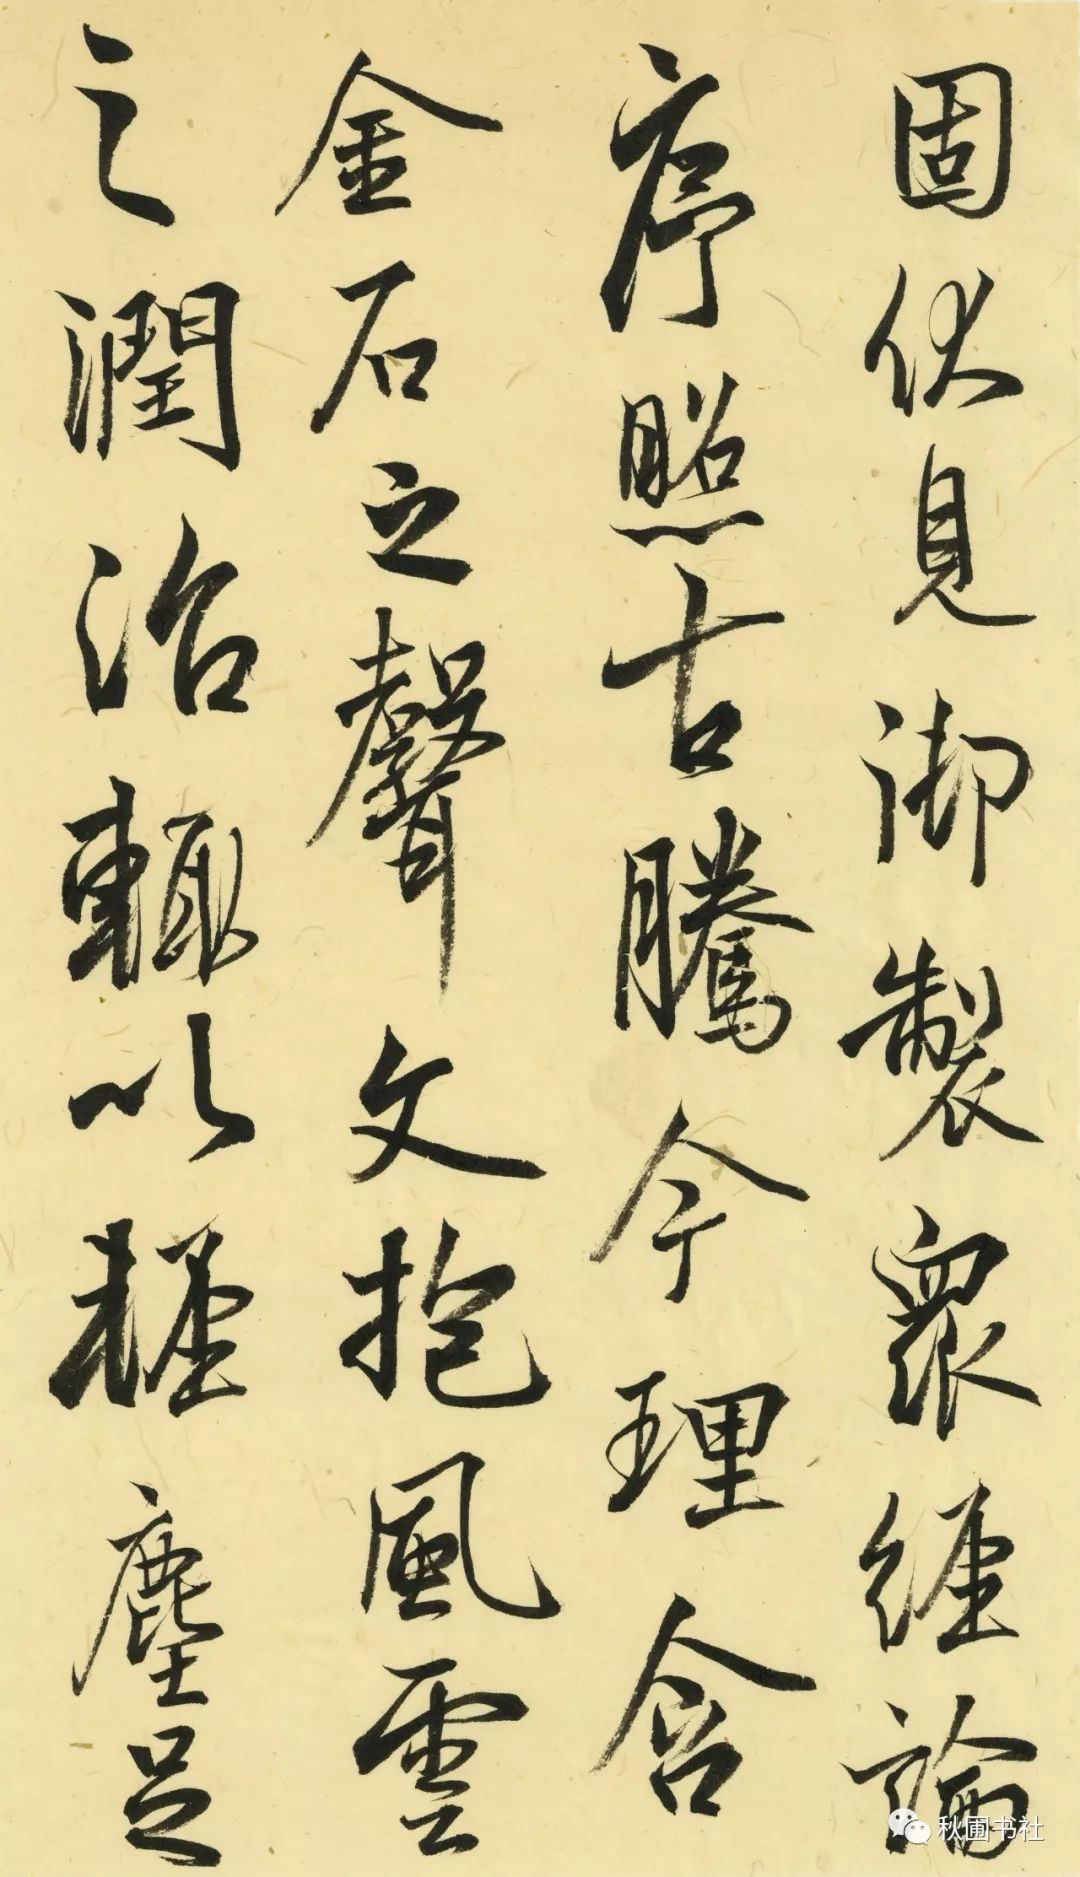 固伏見御製眾經論
序照古騰今理含
金石之聲文抱風雲
之潤治輒以輕塵足
秋圃书社